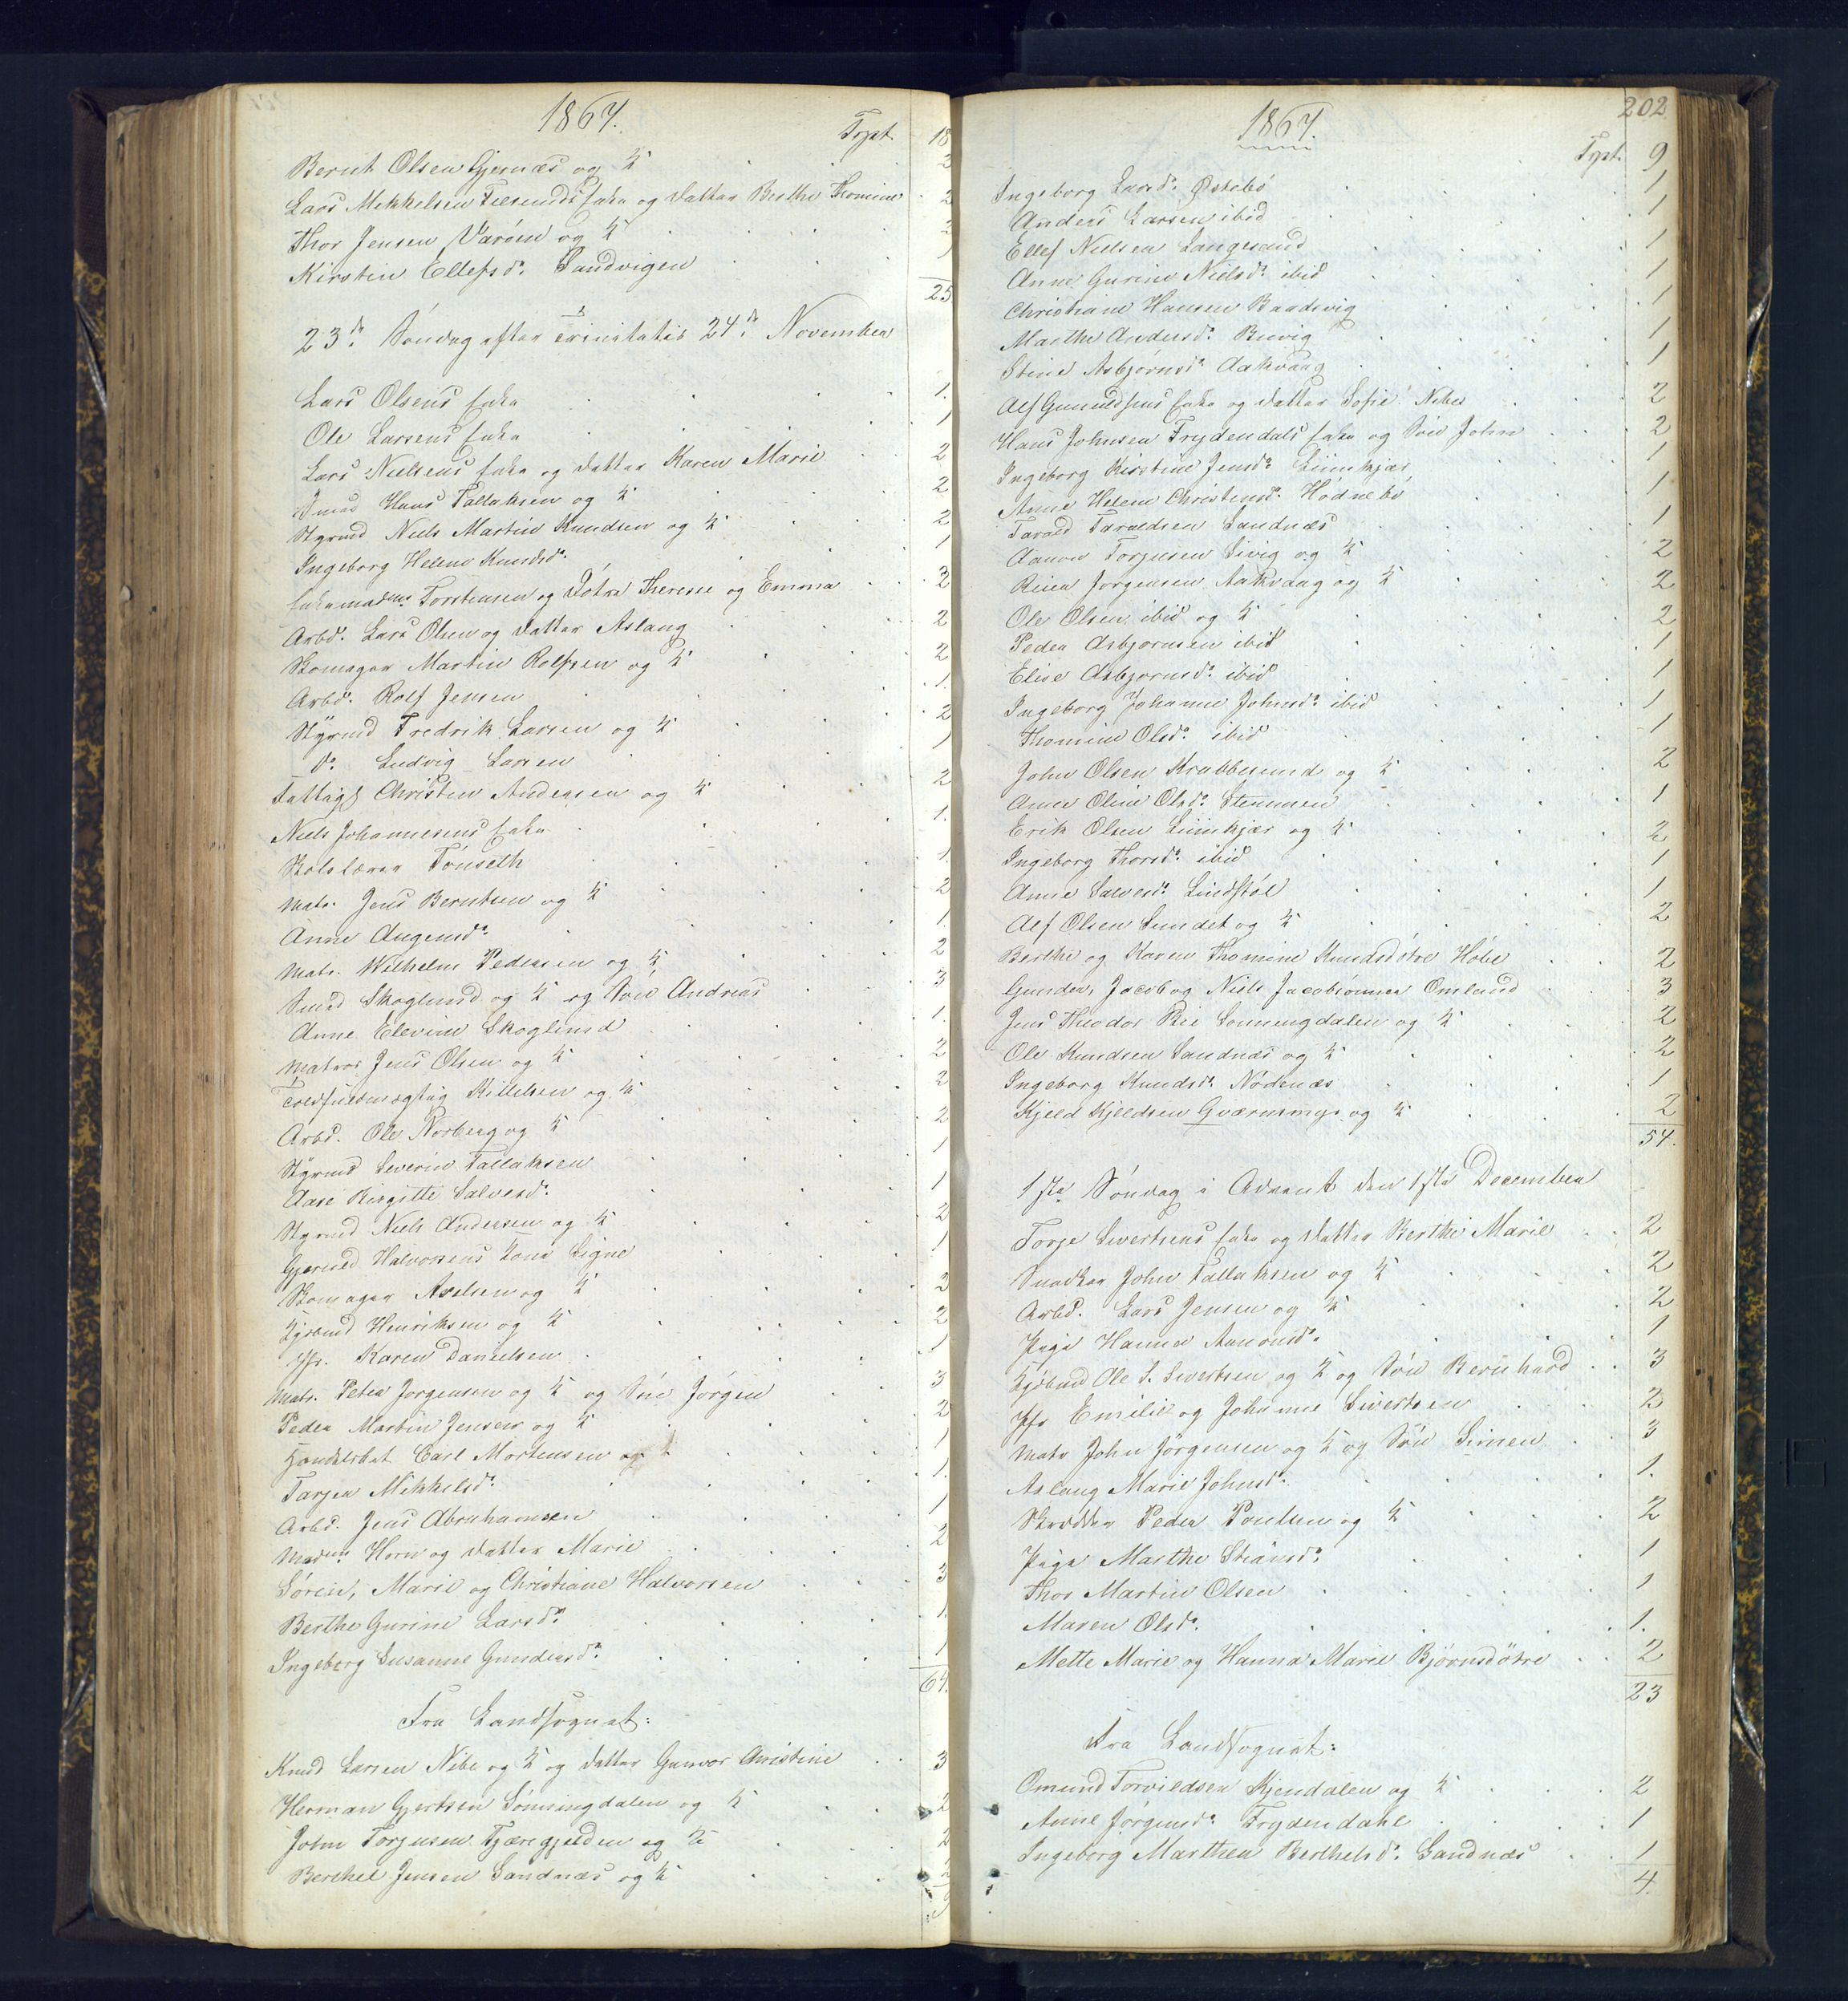 1867.
Trpt. 18
Bernt Olsen Gjernæs og K 2
Lars Mikkelsen Folesunds Enke og Datter Berthe Thomine 2
Thor Jensen Varöen og K 2
Kirstin Ellefsd. Sandvigen 1
25
23de Söndag efter Trinitatis 24de November
Lars Olsens Enke 1.
Ole Larsens Enke 1
Lars Nielsens Enke og Datter Karen Marie 2
Smed Hans Tallaksen og K 2
Styrmd Niels Martin Knudsen og K 2
Ingeborg Helene Knudsd. 1
Enkemadme Torstensen og Dötre Therese og Emma 3
Arbd. Lars Olsen og Datter Aslaug 2
Skomager Martin Rolfsen og K 2
Arbd. Rolf Jensen 1.
Styrmd Fredrik Larsen og K 2
Do Ludvig Larsen 1
Fattigf Christen Andersen og K 2
Niels Johannesens Enke 1.
Skolelærer Tönseth 1.
Matr. Jens Berntsen og K 2
Anne Augensd. 1.
Matr. Wilhelm Pedersen og K 2
Smed Skoglund og K og Sön Andreas 3
Anne Elevine Skoglund 1.
Matros Jens Olsen og K 2
Toldfuldmægtig Killelsen og K 2
Arbd. Ole Norberg og K 2
Styrmd Severin Tallaksen 1
Aase Birgitte Salvesd. 1
Styrmd Niels Andersen og K 2
Gjeruld Halvorsens Kone Signe 1
Skomager Axelsen og K 2
Kjöbmd Henriksen og K 2
Jfr. Karen Danielsen 1
Matr. Peter Jörgensen og K og Sön Jörgen 3
Peder Martin Jensen og K 2
Handelsbet. Carl Mortensen 1
Torjer Mikkelsd. 1.
Arbd. Jens Abrahamsen 1
Madme Horn og Datter Marie 2
Sören, Marie og Christiane Halvorsen 3
Berthe Gurine Larsd. 1.
Ingeborg Susanne Gundersd. 1
64.
Fra Landsognet:
Knud Larsen Nibe og K og Datter Gunvor Christine 3
Herman Gjertsen Sönningdalen og K 2
John Torjusen Kjæregjelden og K 2
Berthel Jensen Sandnæs og K 2
9
1867.
202
Trpt. 9
Ingeborg Larsd. Östebö 1
Anders Larsen ibid 1
Ellef Nielsen Langesand 1
Anne Gurine Nielsd. ibid 1
Christiane Hansen Baardsvig 1
Marthe Andersd. Buvig 1
Stine Asbjörnsd. Aakvaag 1
Alf Gunuldsens Enke og Datter Sofie Nibes 2
Hans Johnsen Frydendals Enke og Sön John 2
Ingeborg Kirstine Jensd. Liinkjær 1
Anne Helene Christensd. Hödnebö 1
Tarald Taraldsen Sandnæs 1
Aanon Torjusen Sivig og K 2
Reier Jörgensen Aakvaag og K 2
Ole Olsen ibid og K 2
Peder Asbjörnsen ibid 1
Elise Asbjörnsd. ibid 1
Ingeborg Johanne Johnsd. ibid 1
Thomine Olsd. ibid 1
John Olsen Krabbesund og K 2
Anne Oline Olsd. Stemmen 1
Erik Olsen Liinkjær og K 2
Ingeborg Thorsd. ibid 1
Anne Salvesd. Lindstöl 1
Alf Olsen Sundet og K 2
Berthe og Karen Thomine Knudsdötre Höbe 2
Gunder, Jacob og Niels Jacobsönner Omlund 3
Jens Theodor Bie Sönningdalen og K 2
Ole Knudsen Sandnæs og K 2
Ingeborg Knudsd. Nödenæs 1
Kjeld Kjeldsen Qværnsmyr og K 2
54.
1ste Söndag i Advent den 1ste December
Torge Sivertsens Enke og Datter Berthe Marie 2
Snedker John Tallaksen og K 2
Arbd. Lars Jensen og K 2
Pige Hanna Aanonsd. 1
Kjöbmd Ole S. Sivertsen og K og Sön Bernhard 3
Jfr Emilie og Johanne Sivertsen 2
Matr John Jörgensen og K og Sön Simen 3
Aslaug Marie Johnsd. 1.
Skrædder Peder Poulsen og K 2
Pige Marthe Steansd. 1
Thor Martin Olsen 1
Maren Olsd. 1.
Mette Marie og Hanna Marie Björnsdötre 2
23
Fra Landsognet:
Omund Torvildsen Kjendalen og K 2
Anne Jörgensd. Frydendahl 1
Ingeborg Marthea Berthelsd. Sandnæs 1
4.